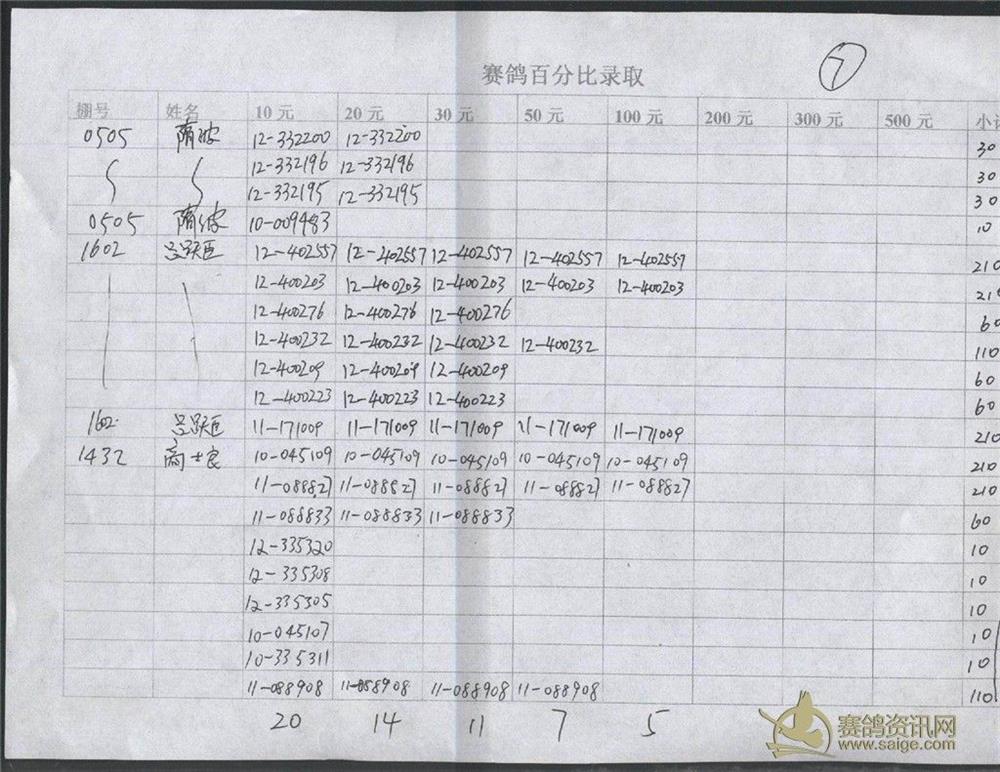 赛鸽百分比录取 7
棚号 姓名 10元 20元 30元 50元 100元 200元 300元 500元 小
0505 12-332200 12-332200 30
12-332196 12-332196 30
12-332195 12-332195 30
0505 10-009483 10
1602 吕跃臣 12-402557 12-402557 12-402557 12-402557 12-402557 210
12-400203 12-400203 12-400203 12-400203 12-400203 210
12-400276 12-400276 12-400276 60
12-400232 12-400232 12-400232 12-400232 110
12-400209 12-400209 12-400209 60
12-400223 12-400223 12-400223 60
1602 吕跃臣 11-171009 11-171009 11-171009 11-171009 11-171009 210
1432 商士良 10-045109 10-045109 10-045109 10-045109 10-045109 210
11-088827 11-088827 11-088827 11-088827 11-088827 210
11-088833 11-088833 11-088833 60
12-335320 10
12-335308 10
12-335305 10
10-045107 10
10-335311 10
11-088908 11-088908 11-088908 11-088908 110
20 14 11 7 5
赛鸽资讯网
www.saige.com